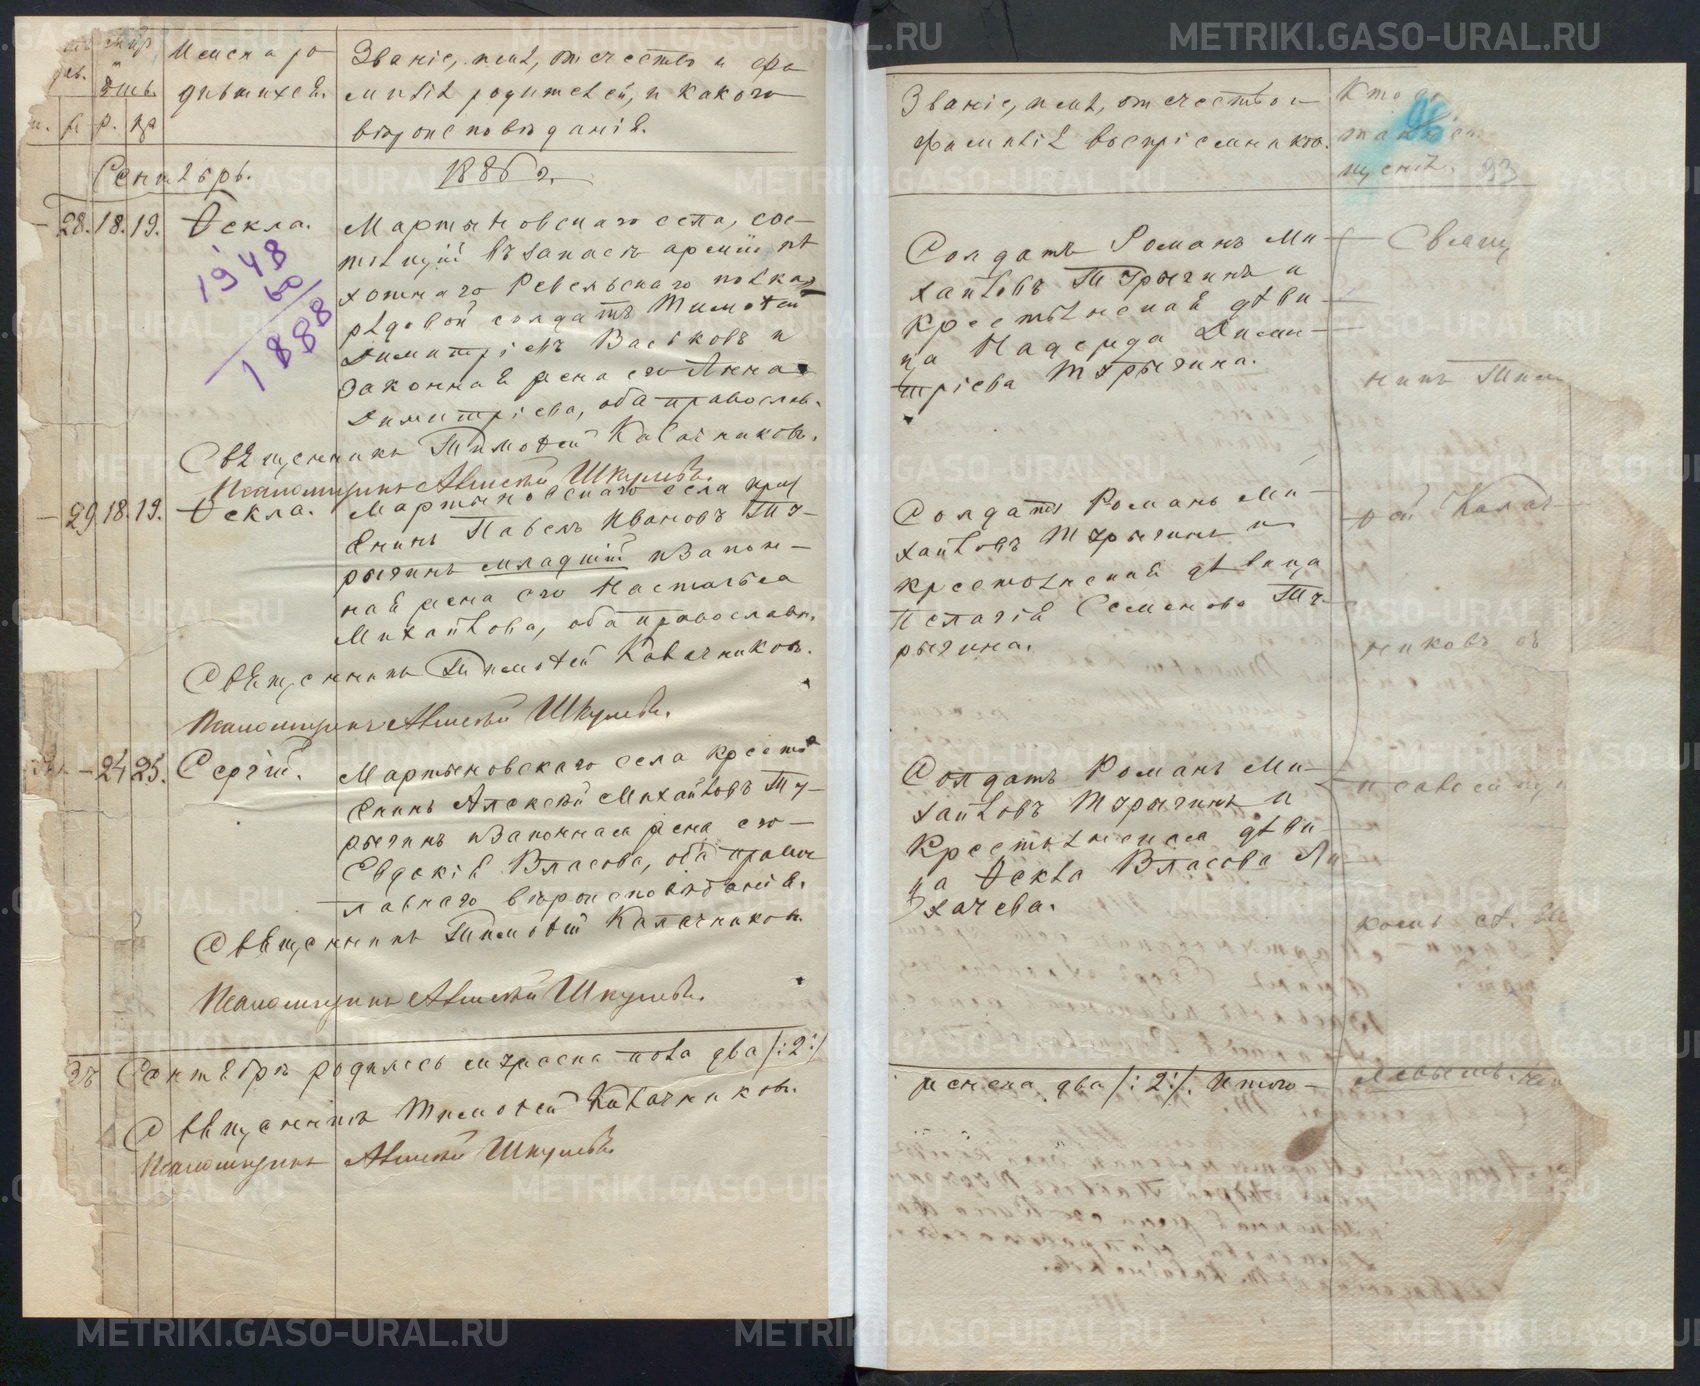 Имена ро
дившихся.
Званіе, имя, отчество и фа
милія родителей, и какого
вѣроисповѣданія.
м. ж. р. кр
Сентябрь.
1886 г.
28. 18. 19. Ѳекла.
Мартыновскаго села, сос-
тоящій въ запасѣ арміи пѣ
хотнаго Ревельскаго полка
рядовой солдатъ Тимоѳей
Димитріевъ Васьковъ и
законная жена его Анна
Димитріева, оба православ.
Священникъ Тимоѳей Калачниковъ.
Псаломщикъ Алексѣй Шкулевъ.
1948
60
1888
29. 18. 19. Ѳекла.
Мартыновскаго села крест
янинъ Павелъ Ивановъ Ту-
рыгинъ младшій и закон-
ная жена его Настасья
Михайлова, оба православн.
Священникъ Тимоѳей Калачниковъ.
Псаломщикъ Алексѣй Шкулевъ.
24 25. Сергій.
Мартыновскаго села кресть
янинъ Алексѣй Михайловъ Ту-
рыгинъ и законная жена его
Евдокія Власова, оба правос
лавнаго вѣроисповѣданія.
Священникъ Тимоѳей Калачниковъ.
Псаломщикъ Алексѣй Шкулевъ.
Въ Сентябрѣ родилось мужеска пола два /:2:/
Священникъ Тимоѳей Калачниковъ.
Псаломщикъ Алексѣй Шкулевъ.
Званіе, имя, отчество и
фамилія воспріемниковъ.
Кто
93
Солдатъ Романъ Ми-
хайловъ Турыгинъ и
крестьянская дѣви-
ца Надежда Дими-
тріева Турыгина.
Свящ
никъ Тим
Солдатъ Романъ Ми-
хайловъ Турыгинъ и
крестьянская дѣвица
Пелагія Семенова Ту-
рыгина.
ѳей Калач-
никовъ съ
Солдатъ Романъ Ми-
хайловъ Турыгинъ и
крестьянская дѣви-
ца Ѳекла Власова Ли-
хачева.
псаломщи
комъ Ал. Ш
женска два /:2:/. Итого-
METRIKI.GASO-URAL.RU